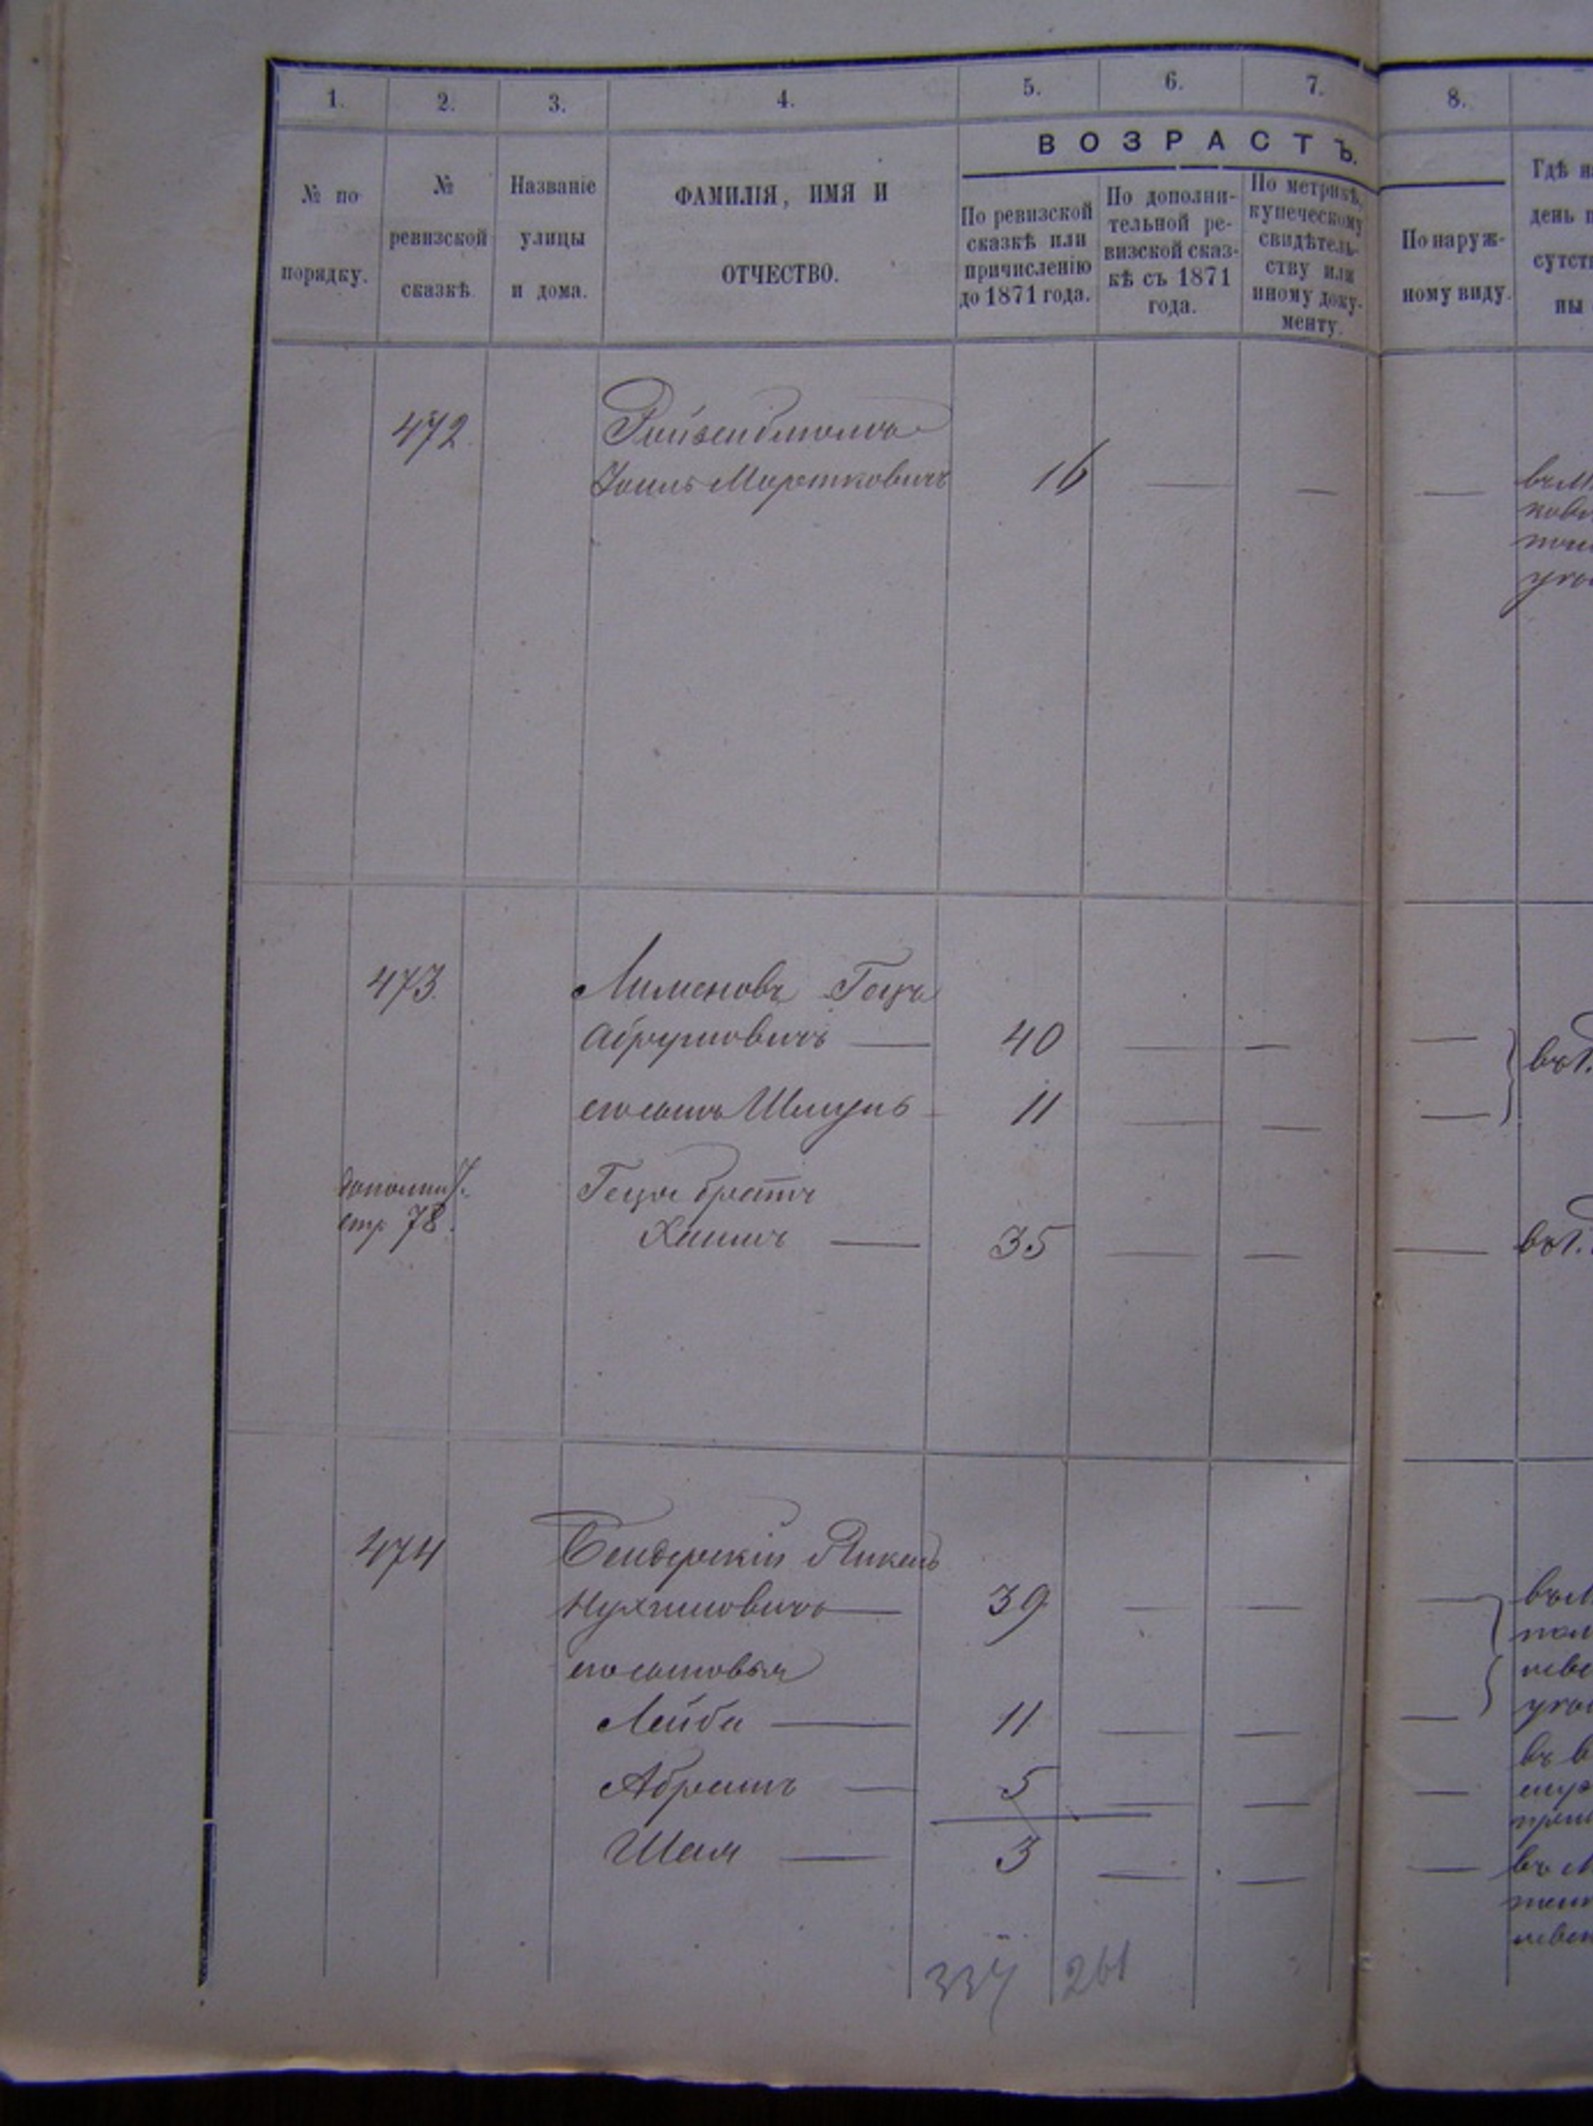 1. 2. 3. 4. 5. 6. 7. 8.
ВОЗРАСТЪ.
№ по порядку.
№ ревизской сказкѣ.
Названіе улицы и дома.
ФАМИЛІЯ, ИМЯ И ОТЧЕСТВО.
По ревизской сказкѣ или причисленію до 1871 года.
По дополнительной ревизской сказкѣ съ 1871 года.
По метрикѣ, купеческому свидѣтельству или иному документу.
По наружному виду.
Гдѣ н
день п
сутст
ны
472
Іоиль Мортковичъ 16 — — —
473. Лименовъ Гецъ
Абрумовичъ — 40 — — —
его сынъ Шмуль 11 — — —
Геца братъ
стр 78. Хаимъ — 35 — — —
474 Бендерскій Янкель
Нухимовичъ — 39 — — —
его сыновья
Лейба — 11 — — —
Абрамъ — 5 — — —
Шая — 3 — — —
334 261